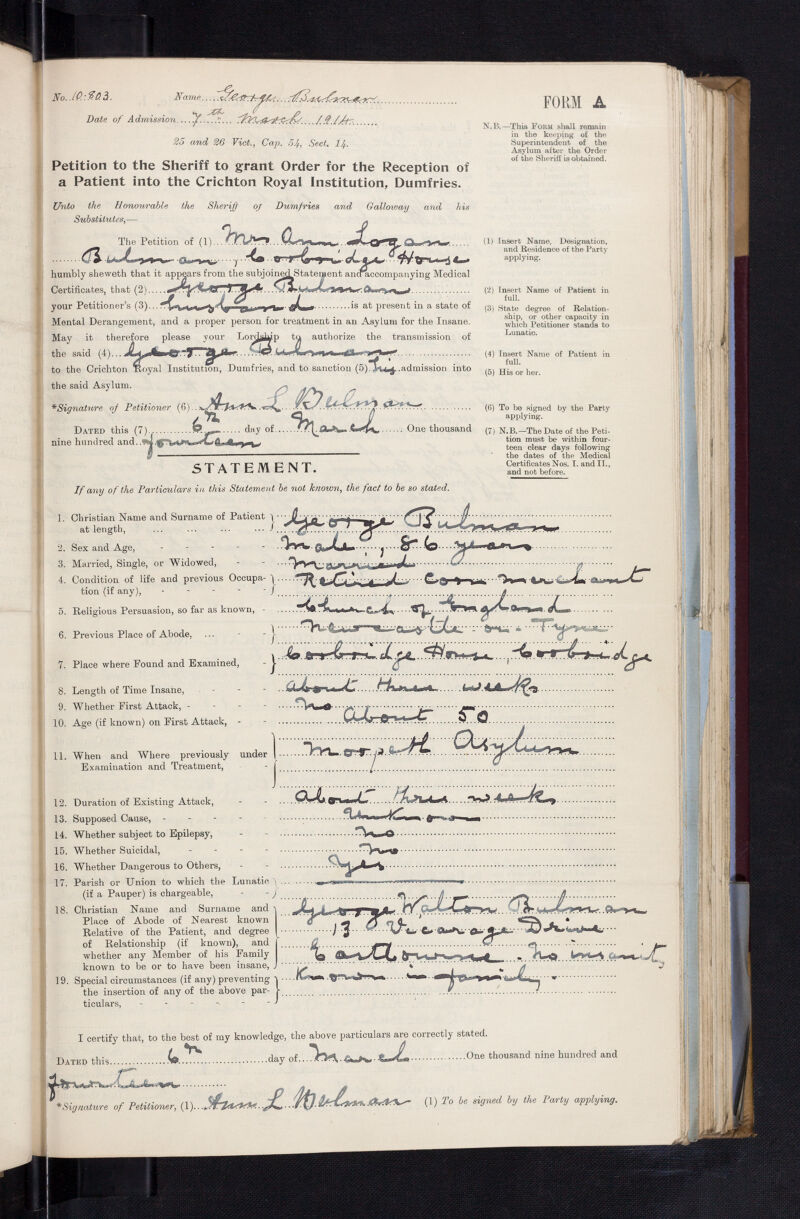 No. 10.803. Name George Bulman
Date of Admission 7th March 1914
25 and 26 Vict., Cap. 54, Sect. 14.
Petition to the Sheriff to grant Order for the Reception of
a Patient into the Crichton Royal Institution, Dumfries.
Unto the Honourable the Sheriff of Dumfries and Galloway and his
Substitutes,—
The Petition of (1) Mrs Ann Logan
Bulman, Corbridge House
humbly sheweth that it appears from the subjoined Statement and accompanying Medical
Certificates, that (2) George Bulman
your Petitioner's (3) husband is at present in a state of
Mental Derangement, and a proper person for treatment in an Asylum for the Insane.
May it therefore please your Lordship to authorize the transmission of
the said (4) George Bulman
to the Crichton Royal Institution, Dumfries, and to sanction (5) his admission into
the said Asylum.
*Signature of Petitioner (6) Ann L Bulman
Dated this (7) 6th day of March One thousand
nine hundred and fourteen
FORM A
N.B.—This Form shall remain
in the keeping of the
Superintendent of the
Asylum after the Order
of the Sheriff is obtained.
(1) Insert Name, Designation,
and Residence of the Party
applying.
(2) Insert Name of Patient in
full.
(3) State degree of Relation-
ship, or other capacity in
which Petitioner stands to
Lunatic.
(4) Insert Name of Patient in
full.
(5) His or her.
(6) To be signed by the Party
applying.
(7) N.B.—The Date of the Peti-
tion must be within four-
teen clear days following
the dates of the Medical
Certificates Nos. I. and II.,
and not before.
STATEMENT.
If any of the Particulars in this Statement be not known, the fact to be so stated.
1. Christian Name and Surname of Patient
at length, George Bulman
2. Sex and Age, Male, 86 years
3. Married, Single, or Widowed, Married
4. Condition of life and previous Occupa-
tion (if any), Retired Corn merchant
5. Religious Persuasion, so far as known, Church of England
6. Previous Place of Abode, Newcastle-on-Tyne
7. Place where Found and Examined, Corbridge House, Corbridge
8. Length of Time Insane, about three weeks
9. Whether First Attack, No
10. Age (if known) on First Attack, About 50
11. When and Where previously under
Examination and Treatment, Morpeth Asylum
12. Duration of Existing Attack, About three weeks
13. Supposed Cause, Unknown
14. Whether subject to Epilepsy, No
15. Whether Suicidal, No
16. Whether Dangerous to Others, Yes
17. Parish or Union to which the Lunatic
(if a Pauper) is chargeable,
18. Christian Name and Surname and
Place of Abode of Nearest known
Relative of the Patient, and degree
of Relationship (if known), and
whether any Member of his Family
known to be or to have been insane,
George Walton Bulman
13 Vicarage Drive
Eastbourne. No insanity
Known in family.
19. Special circumstances (if any) preventing
the insertion of any of the above par-
ticulars,
I certify that, to the best of my knowledge, the above particulars are correctly stated.
Dated this 6th day of March One thousand nine hundred and
fourteen
*Signature of Petitioner, (1) Ann L Bulman (1) To be signed by the Party applying.